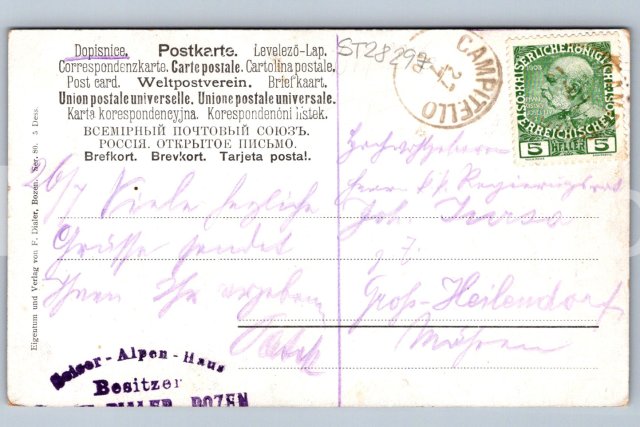 Dopisnice. Postkarte. Levelező-Lap.
Correspondenzkarte. Carte postale. Cartolina postale.
Post card. Weltpostverein. Briefkaart.
Union postale universelle. Unione postale universale.
Karta korespondencyjna. Korespondenčni listek.
ВСЕМІРНЫЙ ПОЧТОВЫЙ СОЮЗЪ.
РОССІЯ. ОТКРЫТОЕ ПИСЬМО.
Brefkort. Brevkort. Tarjeta postal.
ST28297
CAMPITELLO
1908
5 HELLER 5
Eigentum und Verlag von F. Dialer, Bozen. Ser. 80. 5 Dess.
Viele herzliche
Grüsse sendet
Ihnen Ihr ergebener
Hochwohlgeboren
Herrn k. k. Regierungsrat
Joh.
Groß-Heilendorf
Mähren
Seiser-Alpen-Haus
Besitzer
DIALER, BOZEN